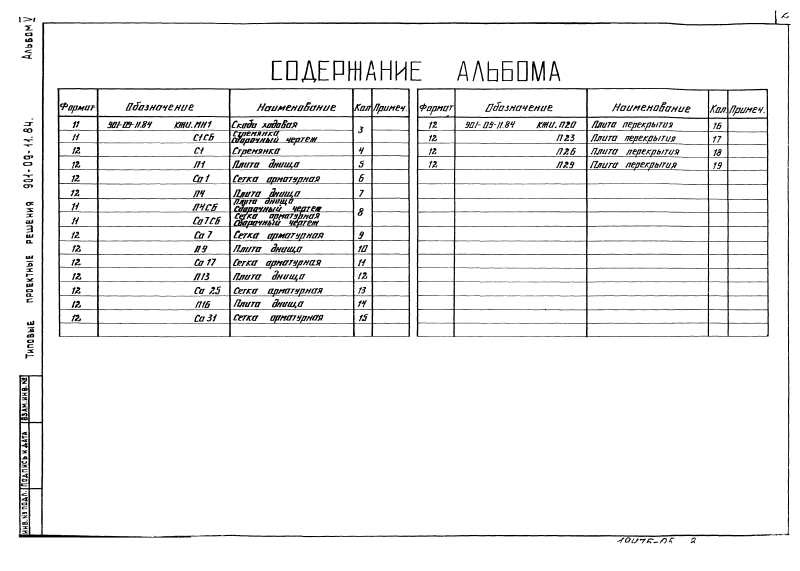 Альбом IV
СОДЕРЖАНИЕ АЛЬБОМА
Формат Обозначение Наименование Кол Примеч.
11 901-09-11.84 КЖИ.МН1 Скоба ходовая 3
11 С1СБ Стремянка
Сборочный чертеж
12 С1 Стремянка 4
12 П1 Плита днища 5
12 Са 1 Сетка арматурная 6
12 П4 Плита днища 7
11 П4СБ Плита днища
Сборочный чертеж 8
11 Са7СБ Сетка арматурная
Сборочный чертеж
12 Са 7 Сетка арматурная 9
12 П9 Плита днища 10
12 Са 17 Сетка арматурная 11
12 П13 Плита днища 12
12 Са 25 Сетка арматурная 13
12 П16 Плита днища 14
12 Са 31 Сетка арматурная 15
Формат Обозначение Наименование Кол Примеч.
12 901-09-11.84 КЖИ.П20 Плита перекрытия 16
12 П23 Плита перекрытия 17
12 П26 Плита перекрытия 18
12 П29 Плита перекрытия 19
ТИПОВЫЕ ПРОЕКТНЫЕ РЕШЕНИЯ 901-09-11.84.
ВЗАМ.ИНВ.№
ПОДПИСЬ И ДАТА
ИНВ.№ ПОДЛ.